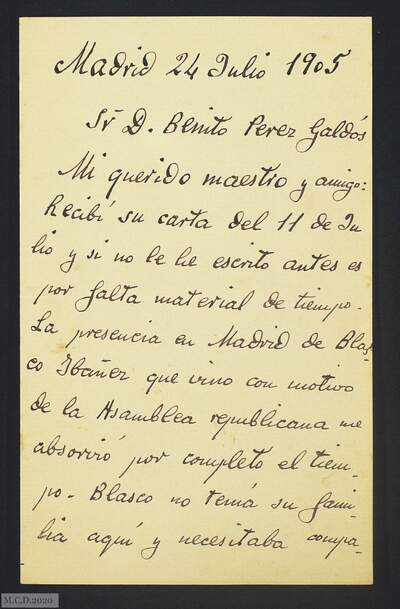 Madrid 24 Julio 1905
Sr D. Benito Perez Galdós
Mi querido maestro y amigo:
Recibí su carta del 11 de Ju
lio y si no le he escrito antes es
por falta material de tiempo.
La presencia en Madrid de Blas
co Ibañez que vino con motivo
de la Asamblea republicana me
absorvió por completo el tiem-
po. Blasco no tenía su fami-
lia aquí y necesitaba compa-
M.C.D.2020